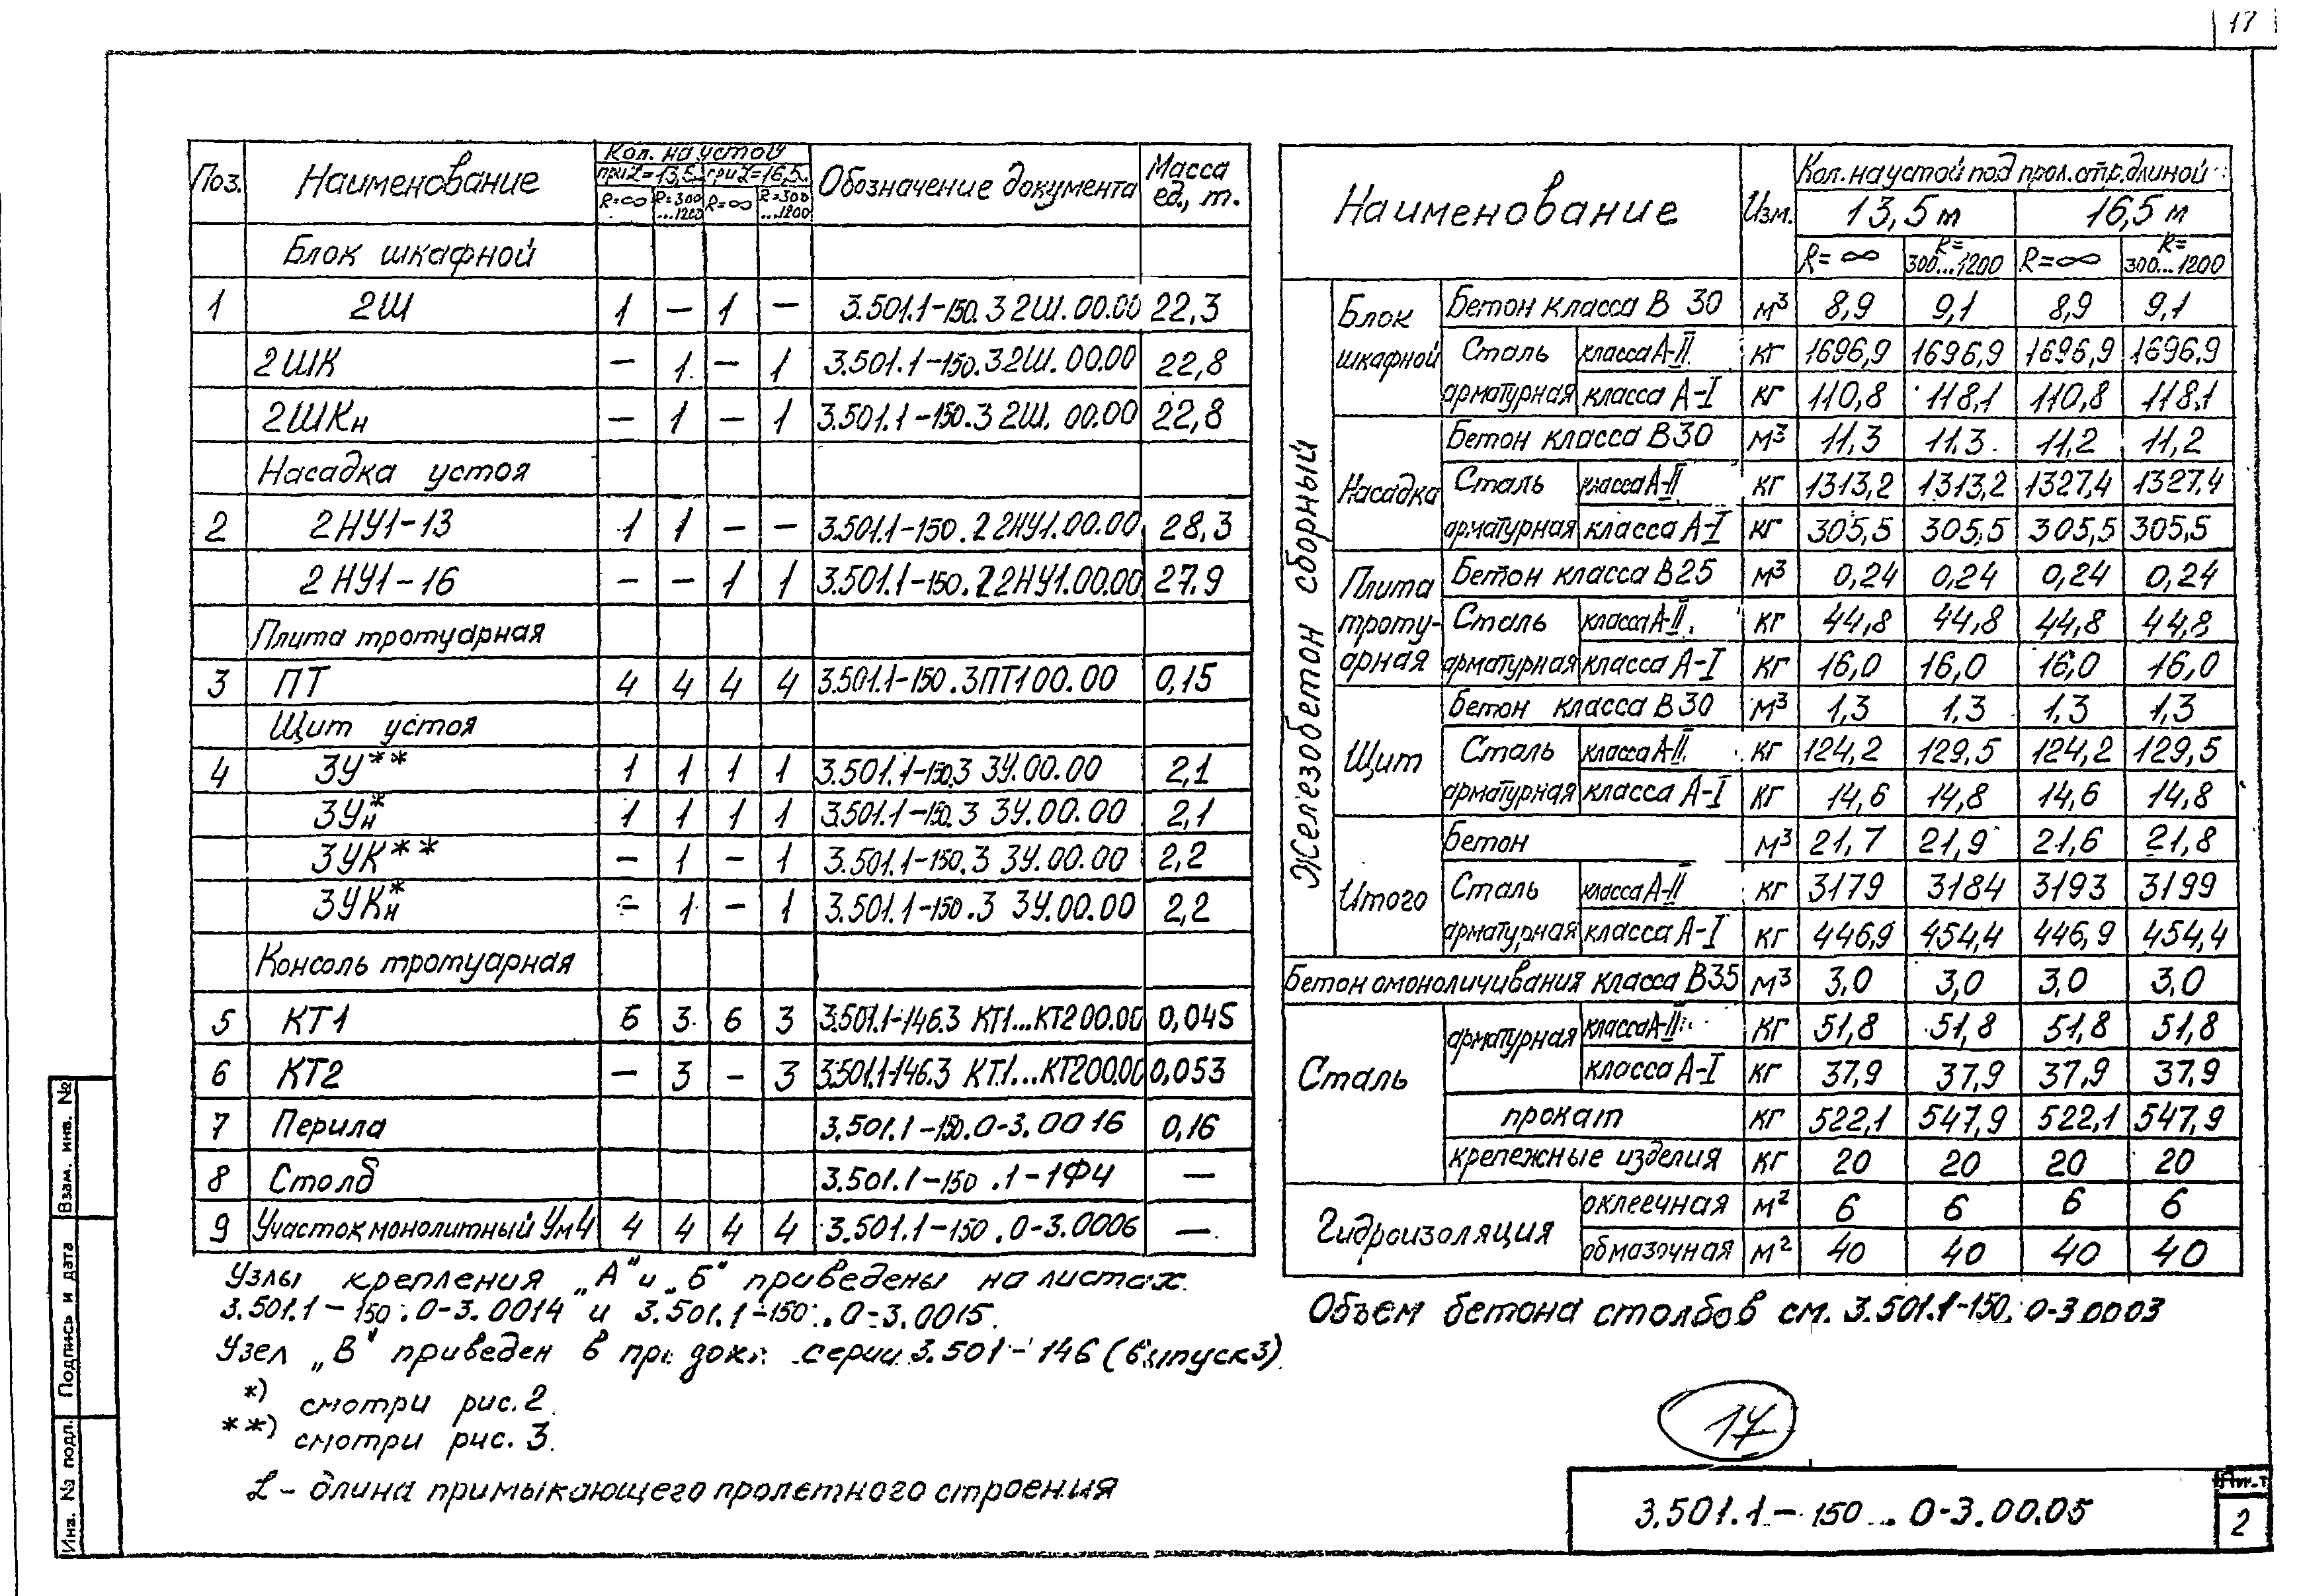 17
Поз. Наименование Кол. на устой Обозначение документа Масса ед., т.
при L=13,5 при L=16,5
R=∞ R=300...1200 R=∞ R=300...1200
Блок шкафной
1 2Ш 1 — 1 — 3.501.1-150.3 2Ш.00.00 22,3
2ШК — 1 — 1 3.501.1-150.3 2Ш.00.00 22,8
2ШКн — 1 — 1 3.501.1-150.3 2Ш.00.00 22,8
Насадка устоя
2 2НУ1-13 1 1 — — 3.501.1-150.2 2НУ1.00.00 28,3
2НУ1-16 — — 1 1 3.501.1-150.2 2НУ1.00.00 27.9
Плита тротуарная
3 ПТ 4 4 4 4 3.501.1-150.3ПТ100.00 0,15
Щит устоя
4 3У** 1 1 1 1 3.501.1-150.3 3У.00.00 2,1
3Ун* 1 1 1 1 3.501.1-150.3 3У.00.00 2,1
3УК** — 1 — 1 3.501.1-150.3 3У.00.00 2,2
3УКн* — 1 — 1 3.501.1-150.3 3У.00.00 2,2
Консоль тротуарная
5 КТ1 6 3 6 3 3.501.1-146.3 КТ1...КТ2 00.00 0,045
6 КТ2 — 3 — 3 3.501.1-146.3 КТ1...КТ2 00.00 0,053
7 Перила 3.501.1-150.0-3.0016 0,16
8 Столб 3.501.1-150.1-1Ф4 —
9 Участок монолитный Ум4 4 4 4 4 3.501.1-150.0-3.0006 —
Узлы крепления „А" и „Б" приведены на листах
3.501.1-150.0-3.0014 и 3.501.1-150.0-3.0015.
Узел „В" приведен в серии 3.501-146 (выпуск 3)
*) смотри рис. 2.
**) смотри рис. 3.
L - длина примыкающего пролетного строения
Наименование Изм. Кол. на устой под прол. стр. длиной:
13,5 м 16,5 м
R=∞ R=300...1200 R=∞ R=300...1200
Железобетон сборный
Блок шкафной Бетон класса В 30 м³ 8,9 9,1 8,9 9,1
Сталь арматурная класса А-II кг 1696,9 1696,9 1696,9 1696,9
класса А-I кг 110,8 118,1 110,8 118,1
Насадка Бетон класса В30 м³ 11,3 11,3 11,2 11,2
Сталь арматурная класса А-II кг 1313,2 1313,2 1327,4 1327,4
класса А-I кг 305,5 305,5 305,5 305,5
Плита тротуарная Бетон класса В25 м³ 0,24 0,24 0,24 0,24
Сталь арматурная класса А-II кг 44,8 44,8 44,8 44,8
класса А-I кг 16,0 16,0 16,0 16,0
Щит Бетон класса В30 м³ 1,3 1,3 1,3 1,3
Сталь арматурная класса А-II кг 124,2 129,5 124,2 129,5
класса А-I кг 14,6 14,8 14,6 14,8
Итого Бетон м³ 21,7 21,9 21,6 21,8
Сталь арматурная класса А-II кг 3179 3184 3193 3199
класса А-I кг 446,9 454,4 446,9 454,4
Бетон омоноличивания класса В35 м³ 3,0 3,0 3,0 3,0
Сталь арматурная класса А-II кг 51,8 51,8 51,8 51,8
класса А-I кг 37,9 37,9 37,9 37,9
прокат кг 522,1 547,9 522,1 547,9
крепежные изделия кг 20 20 20 20
Гидроизоляция оклеечная м² 6 6 6 6
обмазочная м² 40 40 40 40
Объем бетона столбов см. 3.501.1-150.0-3.0003
17
3.501.1-150.0-3.00.05
Лист
2
Взам. инв. №
Подпись и дата
Инв. № подл.